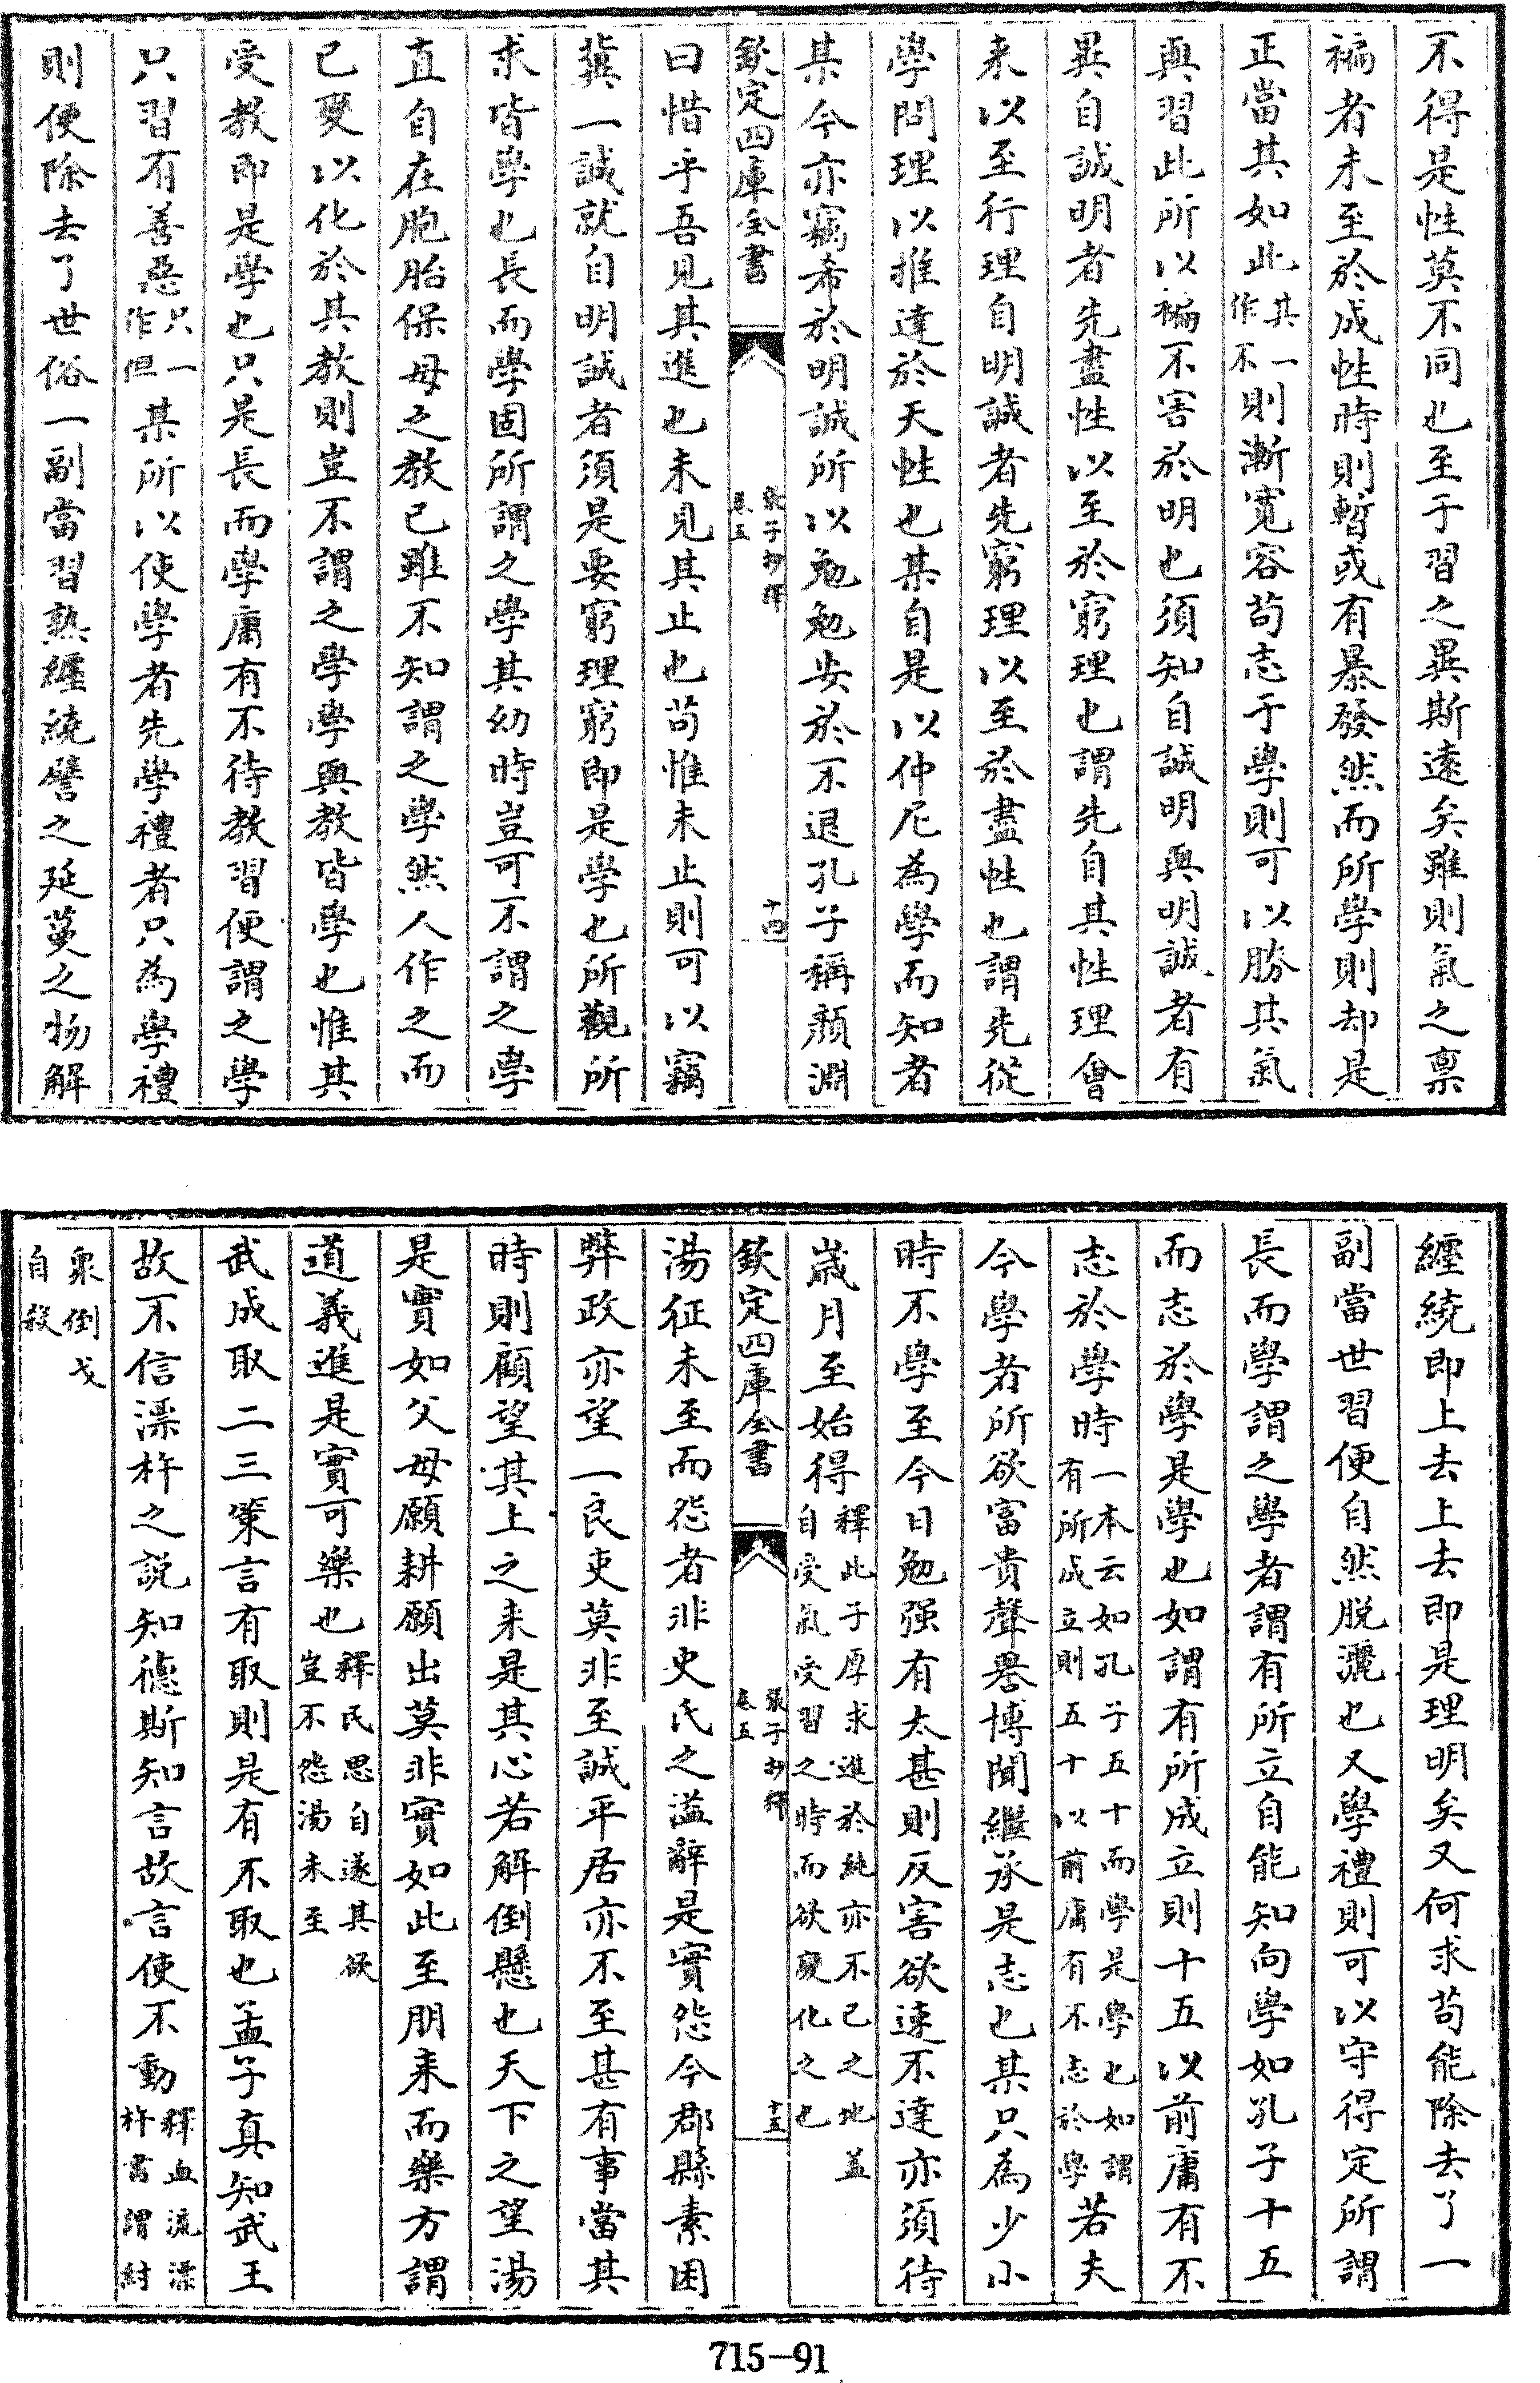 不得是性莫不同也至于習之異斯遠矣雖則氣之禀
褊者未至於成性時則暫或有暴發然而所學則却是
正當其如此其一作不則漸寛容苟志于學則可以勝其氣
與習此所以褊不害於明也須知自誠明與明誠者有
異自誠明者先盡性以至於窮理也謂先自其性理會
来以至行理自明誠者先窮理以至於盡性也謂先從
學問理以推達於天性也某自是以仲尼為學而知者
某今亦竊希於明誠所以勉勉安於不退孔子稱顔淵
欽定四庫全書
張子抄釋
卷五
十四
曰惜乎吾見其進也未見其止也苟惟未止則可以竊
冀一誠就自明誠者須是要窮理窮即是學也所觀所
求皆學也長而學固所謂之學其幼時豈可不謂之學
直自在胞胎保母之教已雖不知謂之學然人作之而
已變以化於其教則豈不謂之學學與教皆學也惟其
受教即是學也只是長而學庸有不待教習便謂之學
只習有善惡只一作但某所以使學者先學禮者只為學禮
則便除去了世俗一副當習熟纒繞譬之延蔓之物解
纒繞即上去上去即是理明矣又何求苟能除去了一
副當世習便自然脱灑也又學禮則可以守得定所謂
長而學謂之學者謂有所立自能知向學如孔子十五
而志於學是學也如謂有所成立則十五以前庸有不
志於學時一本云如孔子五十而學是學也如謂有所成立則五十以前庸有不志於學若夫
今學者所欲富貴聲譽博聞繼承是志也某只為少小
時不學至今日勉强有太甚則反害欲速不達亦須待
歲月至始得釋此子厚求進於純亦不已之地盖自受氣受習之時而欲變化之也
欽定四庫全書
張子抄釋
卷五
十五
湯征未至而怨者非史氏之溢辭是實怨今郡縣素困
弊政亦望一良吏莫非至誠平居亦不至甚有事當其
時則顧望其上之来是其心若解倒懸也天下之望湯
是實如父母願耕願出莫非實如此至朋来而樂方謂
道義進是實可樂也釋民思自遂其欲豈不怨湯未至
武成取二三策言有取則是有不取也孟子真知武王
故不信漂杵之説知德斯知言故言使不動釋血流漂杵書謂紂
衆倒戈自殺
715-91